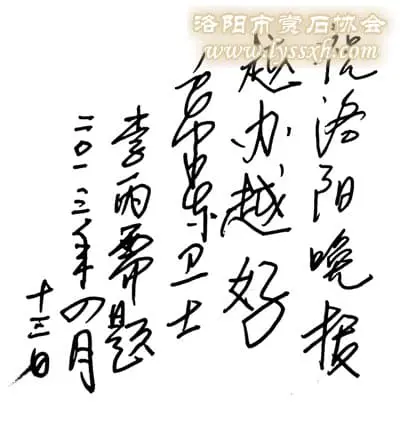 洛阳市赏石协会
www.lyssxh.com
祝洛阳晚报
越办越好
东卫士
李题
二〇一三年四月
十三日